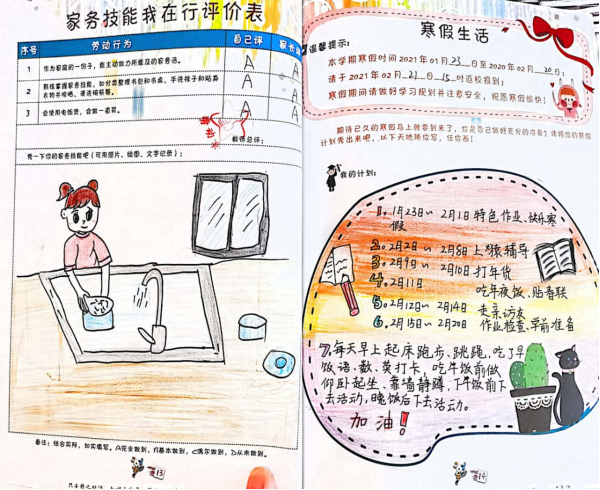 家务技能我在行评价表
序号 劳动行为 自己评 家长
1 作为家庭的一份子，能主动做力所能及的家务活。 A A
2 熟练掌握家务技能，如分类整理书包和书桌、手洗袜子和贴身
衣物并晾晒、清洗碗筷等。 A A
3 会使用电饭煲，会做一道菜。 A A
教师总评：
秀一下你的家务技能吧（可用照片、绘图、文字记录）：
备注：结合实际，如实填写。A完全做到，B基本做到，C偶尔做到，D从未做到。
13
寒假生活
温馨提示：
本学期寒假时间2021年01月23日至2020年02月20日；
请于2021年02月21日-15时返校报到；
寒假期间请做好学习规划并注意安全，祝愿寒假愉快！
期待已久的寒假马上就要到来了，你是否已做好充分的准备？请将你的寒假
计划秀出来吧，以下天地随你写，任你画！
我的计划：
1. 1月23日~ 2月1日 特色作业、快乐寒
假
2. 2月2日~ 2月8日 上辅导
3. 2月9日~ 2月10日 打年货
4. 2月11日 吃年夜饭、贴春联
5. 2月12日~ 2月14日 走亲访友
6. 2月15日~ 2月20日 作业检查、学前准备
7. 每天早上起床跑步、跳绳，吃了早
饭语、数、英打卡，吃午饭前做
仰卧起坐、靠墙静蹲、下午饭前下
去活动，晚饭后下去活动。
加油！
14